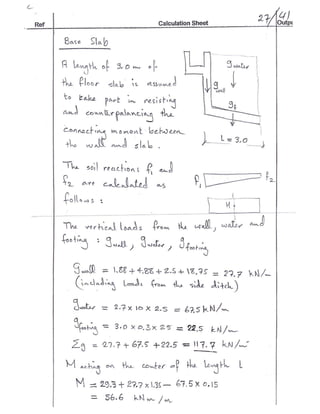 c
27/41
Ref Calculation Sheet Outpu
Base Slab
A length of 3.0 m of
the floor slab is assumed
to take part in resisting
and counterpalancing the
connecting moment between
the wall and slab.
gwater
gwall
gs
L = 3.0
The soil reactions f1 and
f2 are calculated as
follows :
f1
f2
M
The vertical loads from the wall, water and
footing : gwall, gwater, gfooting
gwall = 1.88 + 4.88 + 2.5 + 18.75 = 27.7 kN/m
(including Loads from the side ditch)
gwater = 2.7 x 10 x 2.5 = 67.5 kN/m
gfooting = 3.0 x 0.3 x 25 = 22.5 kN/m
Σg = 27.7 + 67.5 + 22.5 = 117.7 kN/m
M acting on the center of the length L
M = 29.3 + 27.7 x 1.35 - 67.5 x 0.15
= 56.6 kN m /m